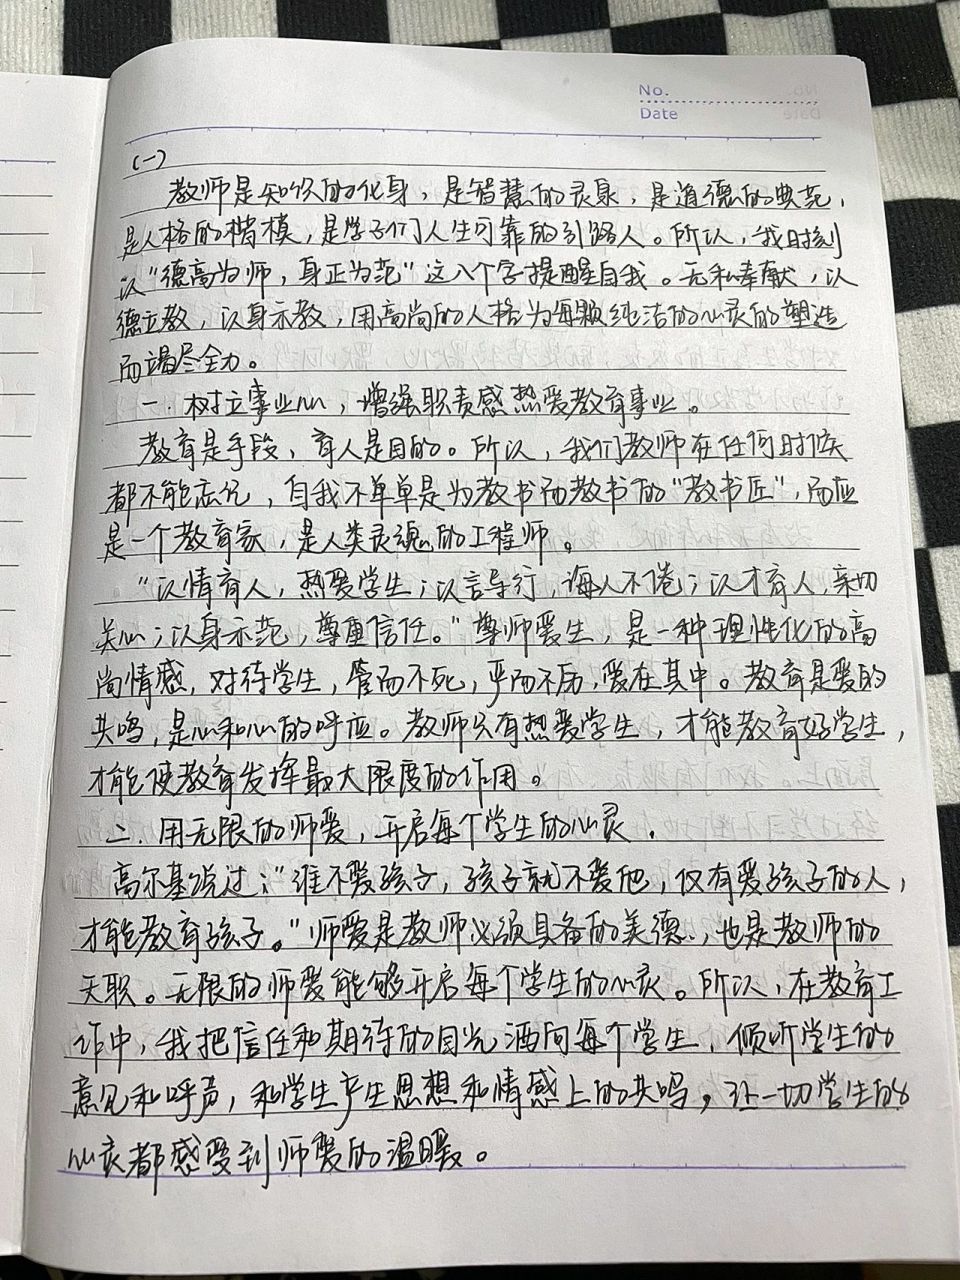 No.
Date
(一)
教师是知识的化身，是智慧的灵泉，是道德的典范，
是人格的楷模，是学子们人生可靠的引路人。所以，我时刻
以"德高为师，身正为范"这八个字提醒自我。无私奉献，以
德立教，以身示教，用高尚的人格为每颗纯洁的心灵的塑造
而竭尽全力。
一．树立事业心，增强职责感热爱教育事业。
教育是手段，育人是目的。所以，我们教师在任何时候
都不能忘记，自我不单单是为教书而教书的"教书匠"，而应
是一个教育家，是人类灵魂的工程师。
"以情育人，热爱学生；以言导行，诲人不倦；以才育人，亲切
关心；以身示范，尊重信任。"尊师爱生，是一种理性化的高
尚情感，对待学生，管而不死，严而不厉，爱在其中。教育是爱的
共鸣，是心和心的呼应。教师只有热爱学生，才能教育好学生，
才能使教育发挥最大限度的作用。
二．用无限的师爱，开启每个学生的心灵．
高尔基说过；"谁不爱孩子，孩子就不爱他，仅有爱孩子的人，
才能教育孩子。"师爱是教师必须具备的美德，也是教师的
天职。无限的师爱能够开启每个学生的心灵。所以，在教育工
作中，我把信任和期待的目光洒向每个学生，倾听学生的
意见和呼声，和学生产生思想和情感上的共鸣，让一切学生的
心灵都感受到师爱的温暖。